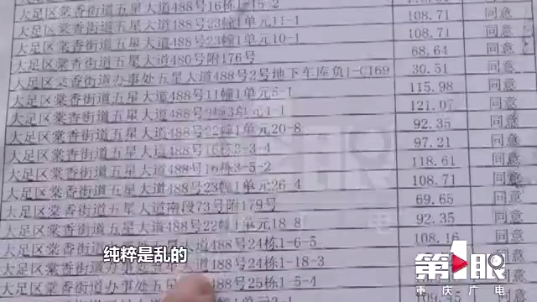 大足区棠香街道五星大道488号16栋1-15-2
大足区棠香街道五星大道488号23幢1单元11-1 108.71 同意
大足区棠香街道五星大道488号23幢1单元10-1 108.71 同意
大足区棠香街道五星大道480号附176号 68.64 同意
大足区棠香街道办事处五星大道488号2号地下车库负1-C169 30.51 同意
大足区棠香街道五星大道488号11幢1单元5-1 115.98 同意
大足区棠香街道五星大道488号9幢3单元1-1 121.07 同意
大足区棠香街道五星大道488号22幢1单元20-8 92.35 同意
大足区棠香街道五星大道488号16栋3-3-4 97.21 同意
大足区棠香街道五星大道488号16栋3-5-2 118.61 同意
大足区棠香街道五星大道488号23幢1单元26-4 108.71 同意
大足区棠香街道五星大道南段73号附179号 69.65 同意
大足区棠香街道五星大道488号22幢1单元18-8 92.35 同意
大足区棠香街道五星大道488号24栋1-6-5 108.16
大足区棠香街道办事处五星大道488号24栋1-18-3
大足区棠香街道办事处五星大道488号25栋1-5-4
纯粹是乱的
第1眼
重庆广电